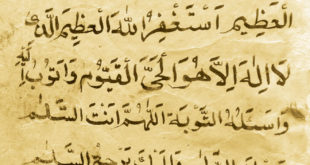 الْعَظِيمَ اَسْتَغْفِرُ اللهَ الْعَظِيمَ الَّذِى
لَا اِلٰهَ اِلَّا هُوَ الْحَىَّ الْقَيُّومَ وَاَتُوبُ اِلَيْهِ
وَاَسْئَلُهُ التَّوْبَةَ اَللّٰهُمَّ اَنْتَ السَّلٰمُ
وَاِلَيْكَ يَرْجِعُ السَّلٰمُ